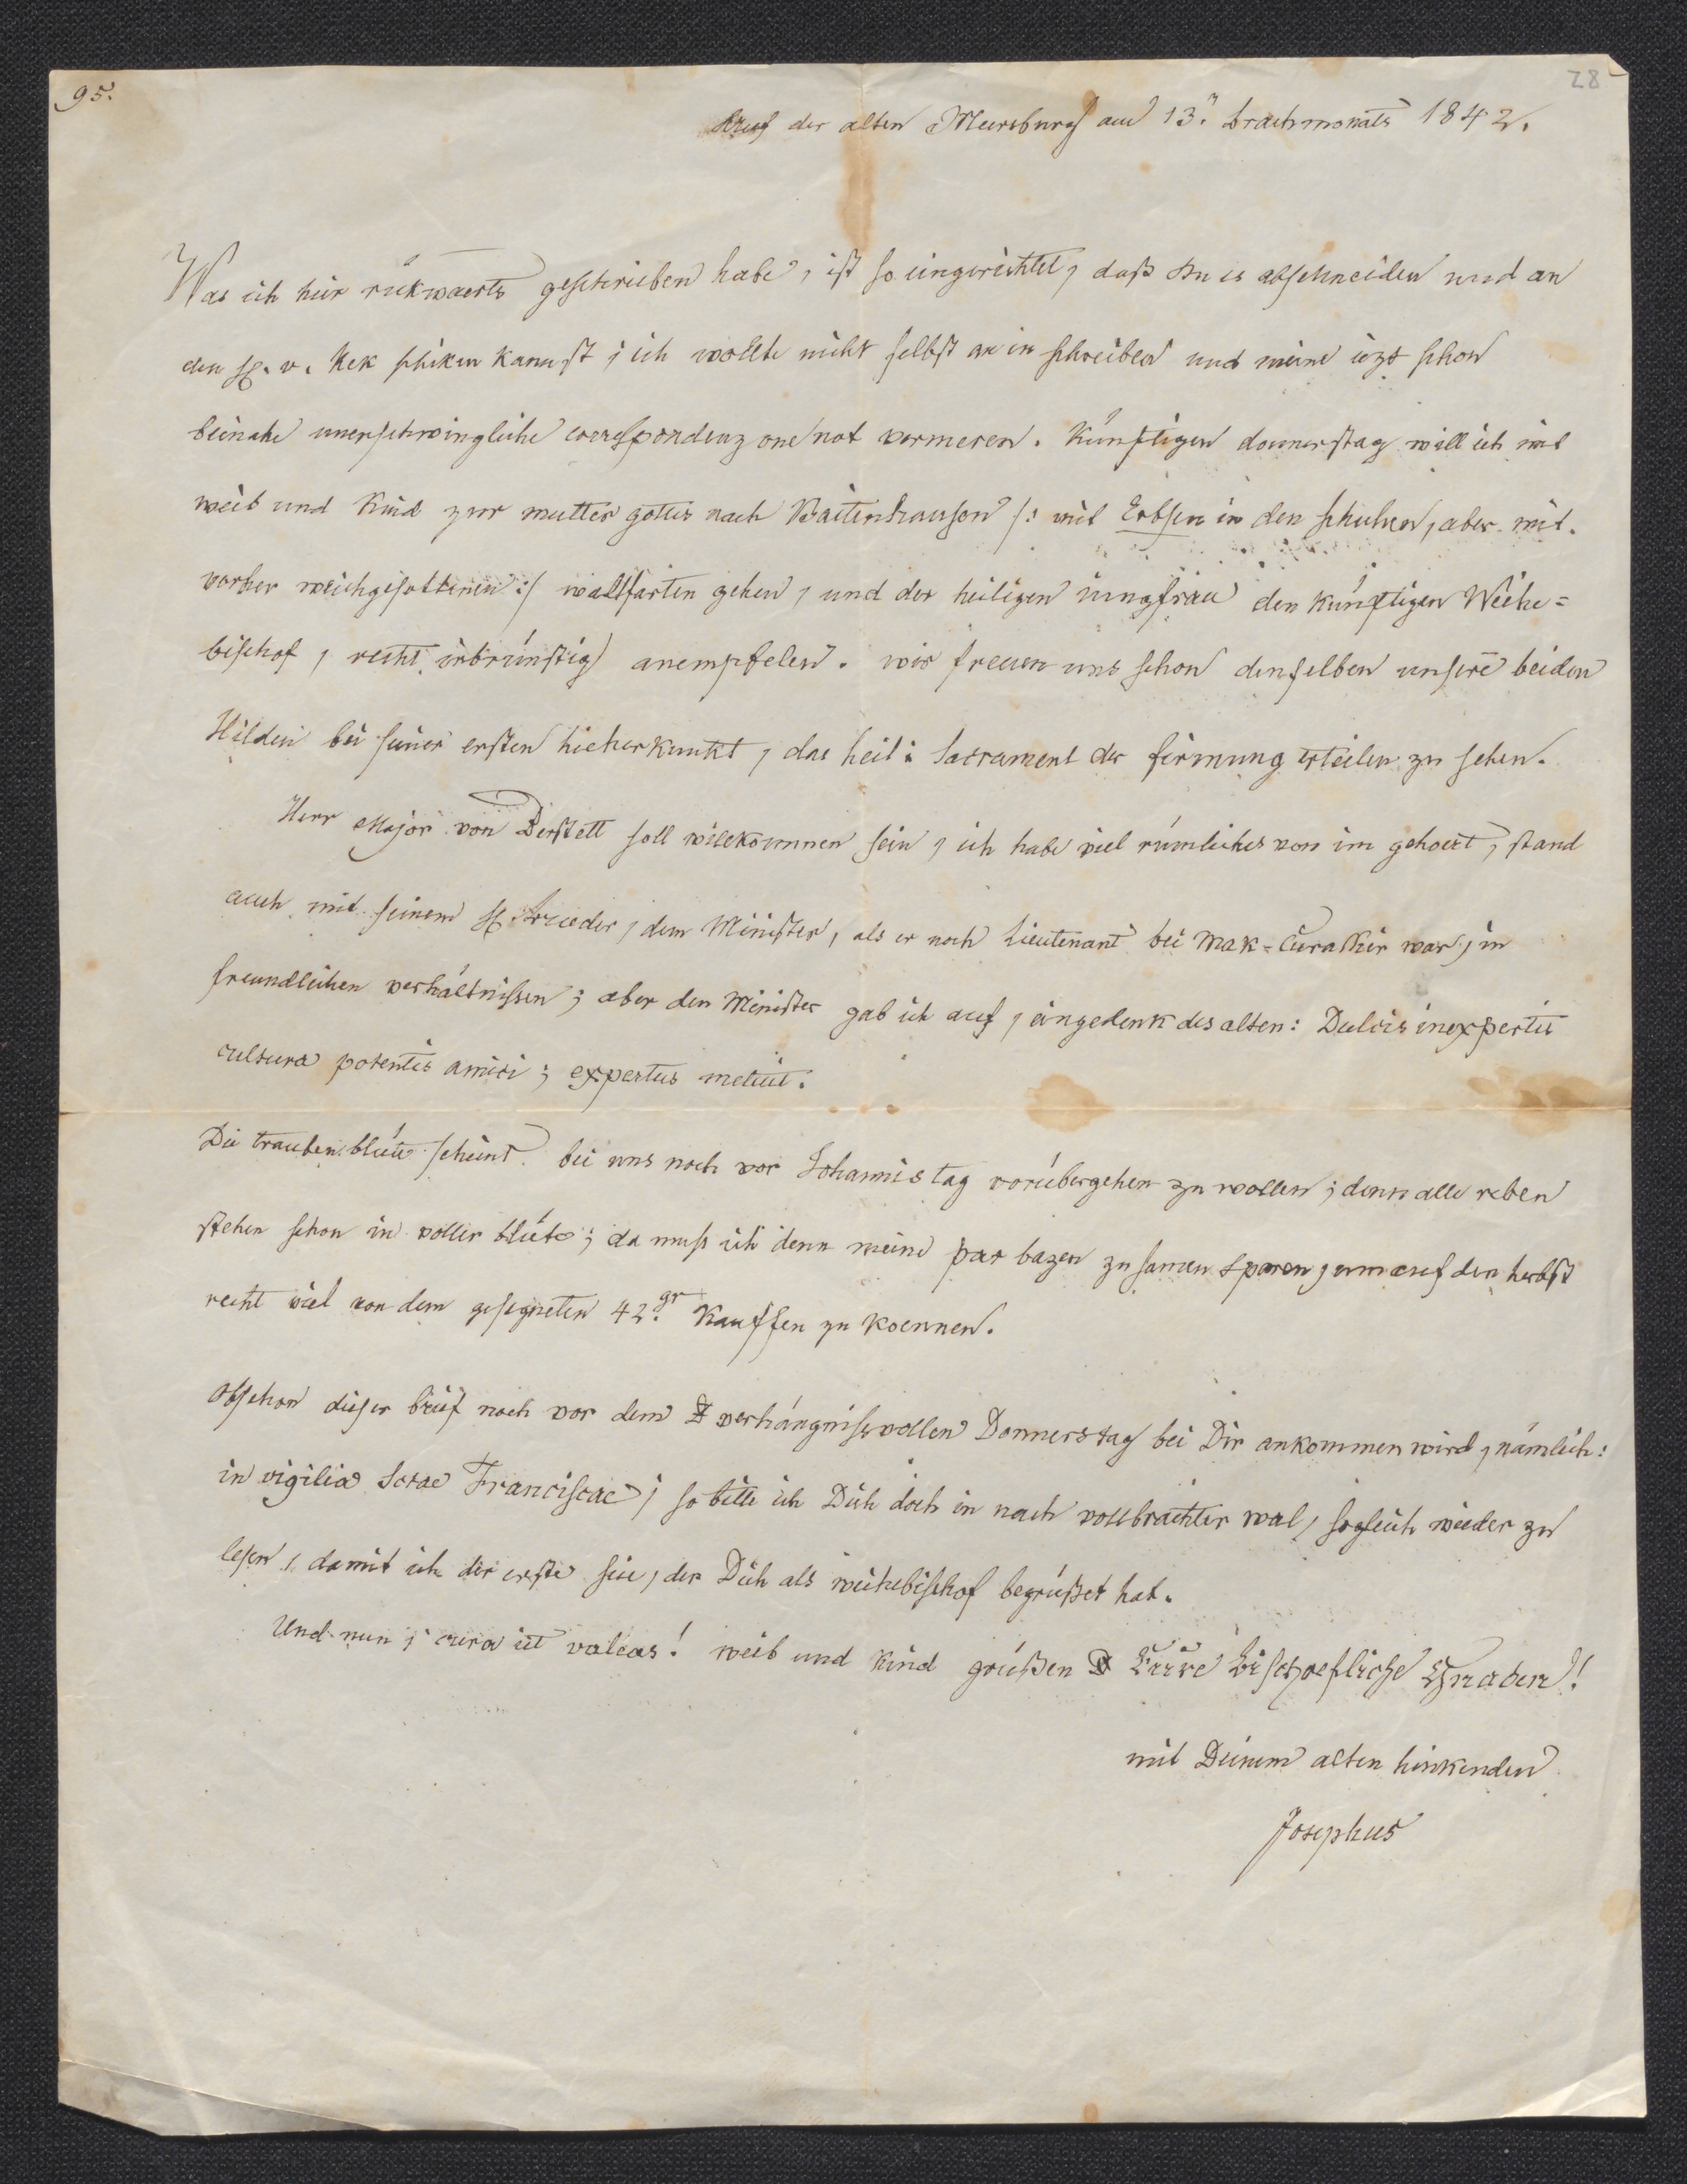 95.
28
Auf der alten Meersburg am 13.n brachmonats 1842.
Was ich hier rükwaerts geschrieben habe, ist so eingerichtet, daß Du es abschneiden und an
den H. v. Kek schiken kannst; ich wollte nicht selbst an in schreiben und meine izt schon
beinahe unerschwingliche correspondenz one not vermeren. Künftigen donnerstag will ich mit
weib und Kind zur mutter gottes nach Baitenhausen /: mit Erbsen in den schuhen, aber mit
vorher weichgesottenen :/ wallfarten gehen, und der heiligen iungfrau den künftigen Weihe=
bischof, recht inbrünstig anempfelen. wir freuen uns schon denselben unsere beiden
Hilden bei seiner ersten hieherkunft, das heil: Sacrament der firmung erteilen zu sehen.
Herr Major von Berstett soll willkommen sein, ich habe viel rümliches von im gehoert, stand
auch mit seinem H. bruder, dem Minister, als er noch lieutenant bei Mak=Curassir war, in
freundlichen verhältnissen; aber den Minister gab ich auf, eingedenk des alten: Dulcis inexpertis
cultura potentis amici; expertus metuit.
Die traubenblüte scheint bei uns noch vor Johannistag vorübergehen zu wollen; denn alle reben
stehen schon in voller blüte; da muß ich denn meine par bazen zusamen sparen, um auf den herbst
recht viel von dem gesegneten 42.gr Kauffen zu koennen.
Obschon dieser brief noch vor dem verhängnißvollen Donnerstag bei Dir ankommen wird, nämlich:
in vigilia Sctae Franciscae; so bitte ich Dich doch in nach vollbrachter wal, sogleich wieder zu
lesen, damit ich der erste sei, der Dich als weihebischof begrüßet hat.
Und nun; cura ut valeas! weib und Kind grüßen Eure bischoefliche Gnaden!
mit Deinem alten hinkenden
Josephus